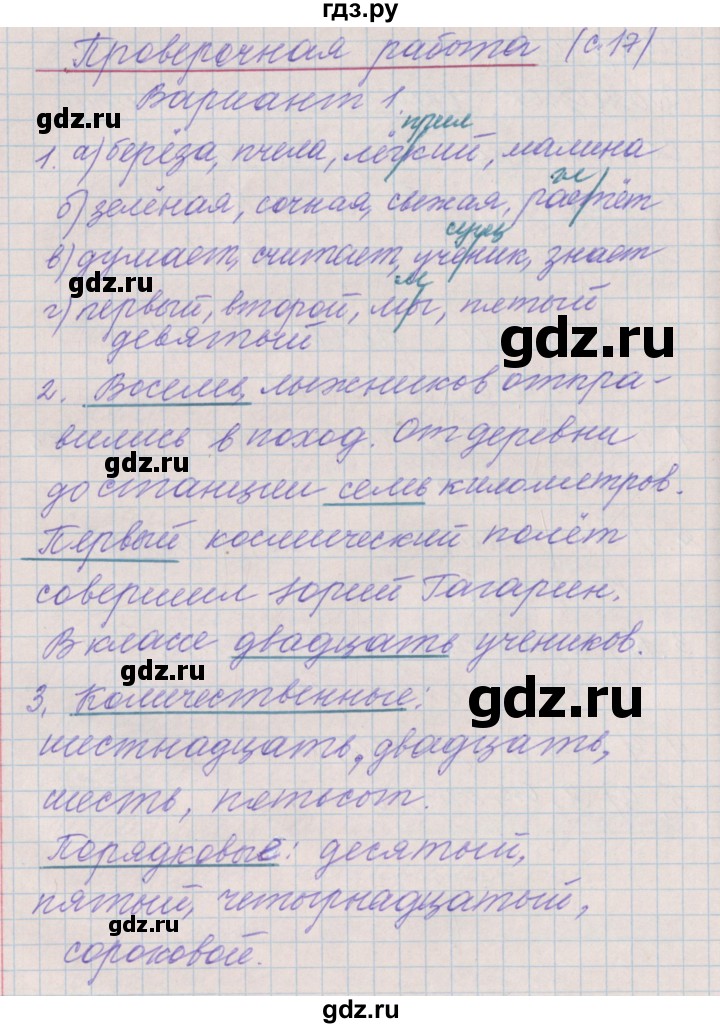 гдз.ру
Проверочная работа (с.17)
Вариант 1.
gdz.ru
прил
1. а) берёза, пчела, лёгкий, малина
гл
б) зелёная, сочная, свежая, растёт
gdz.ru
сущ
в) думает, считает, ученик, знает
gdz.ru
м
г) первый, второй, мы, пятый
девятый
gdz.ru
2. Восемь лыжников отпра-
вились в поход. От деревни
gdz.ru
до станции семь километров.
Первый космический полёт
совершил Юрий Гагарин.
В классе двадцать учеников.
gdz.ru
3. Количественные:
gdz.ru
шестнадцать, двадцать,
шесть, пятьсот.
Порядковые: десятый,
пятый, четырнадцатый,
gdz.ru
сороковой.
gdz.ru
gdz.ru